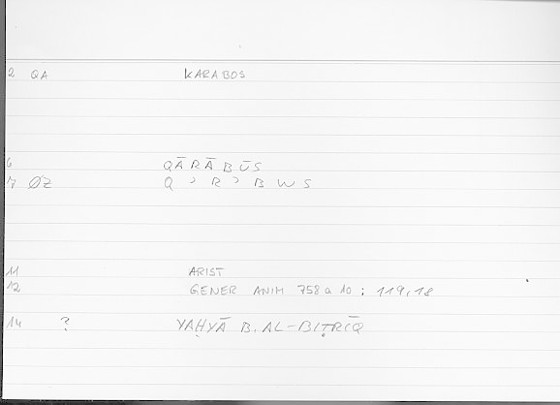 2 QA KARABOS
6 QĀRĀBŪS
7 ØZ Q ʾ R ʾ B W S
11 ARIST
12 GENER ANIM 758 a 10 : 119,18
14 ? YAḤYĀ B. AL-BIṬRĪQ